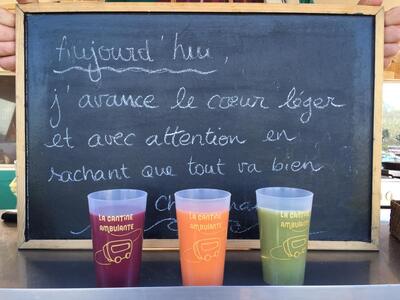 Aujourd'hui,
j'avance le cœur léger
et avec attention en
sachant que tout va bien
LA CANTINE
AMBULANTE
LA CANTINE
AMBULANTE
LA CANTINE
AMBULANTE